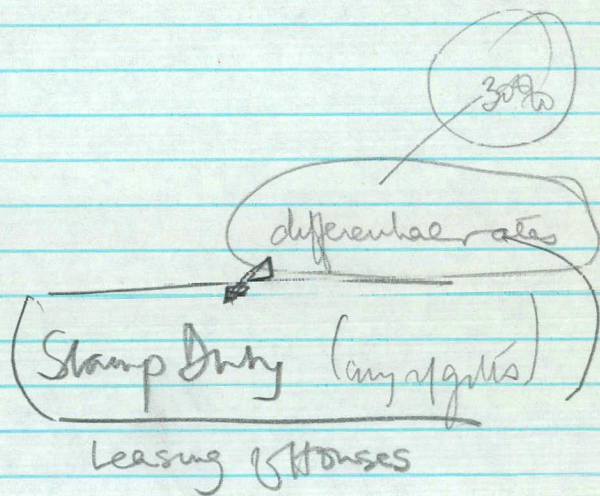 30%
differential rates
Stamp Duty (any
Leasing of Houses